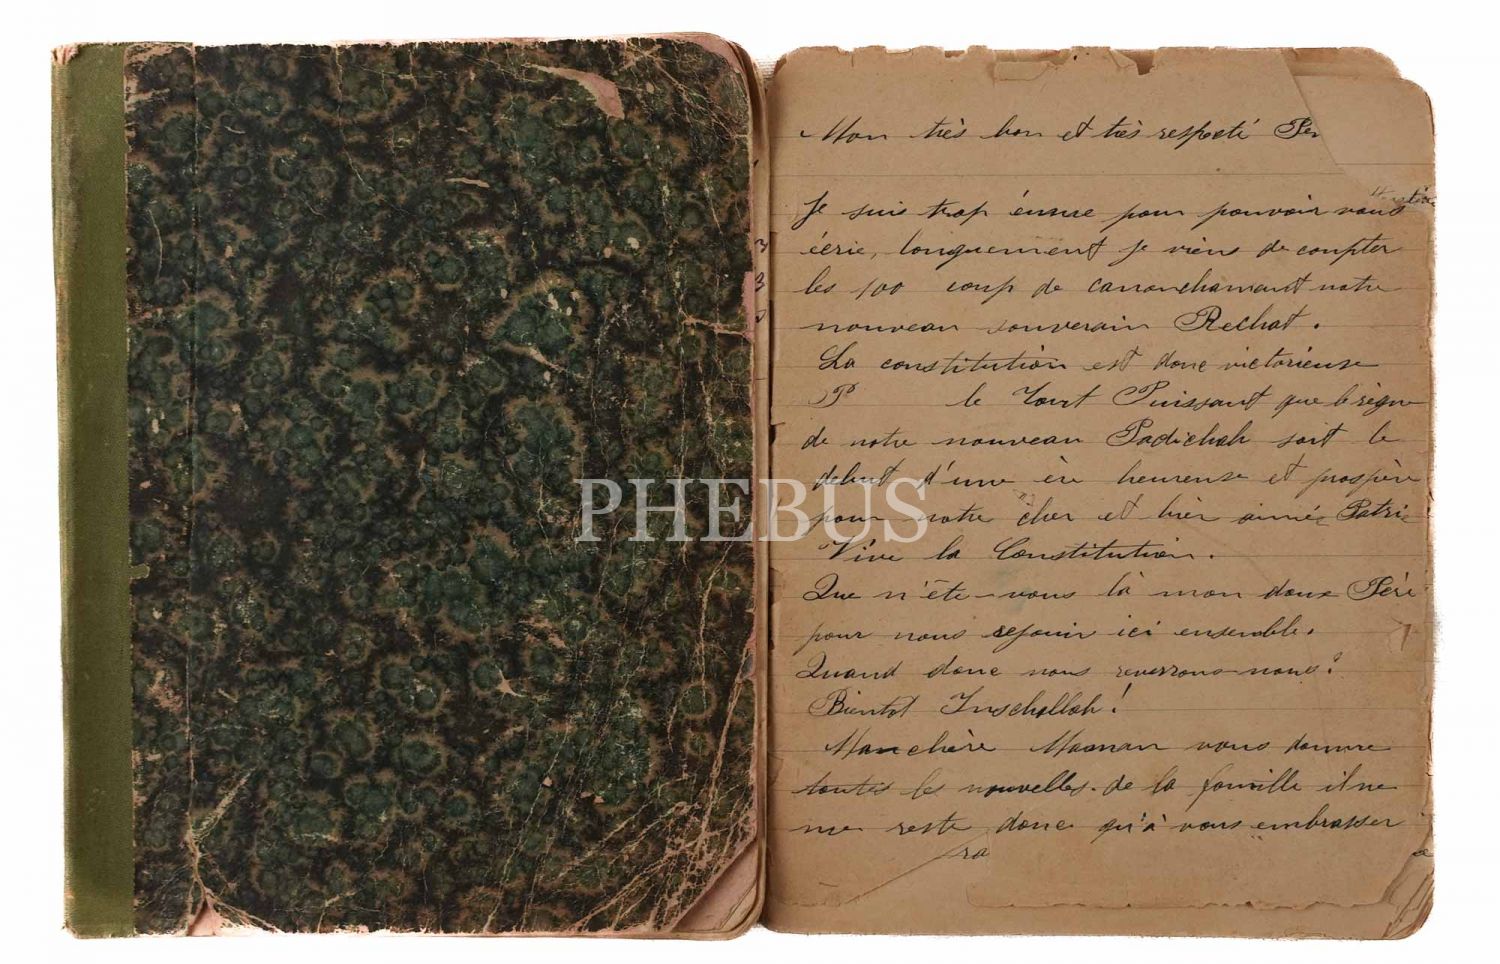 Mon très bon et très respecté Per
Je suis trop émue pour pouvoir vous
écrie, longuement je viens de compter
les 100 coup de canon notre
nouveau souverain Rechat.
La constitution est donc victorieuse
P le Tout Puissant que le règne
de notre nouveau Padichah soit le
debut d'une ère heureuse et prospère
pour notre cher et bien aimée Patri
Vive la Constitution.
Que n'ête-vous là mon doux Péri
pour nous rejouir ici ensemble.
Quand donc nous reverrons-nous?
Bientot Inschallah!
Ma chère Maman vous donne
toutes les nouvelles de la famille il ne
me reste donc qu'à vous embrasser
ra
3
3
3
PHEBUS